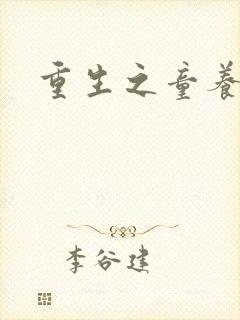 重生之童养
李谷建